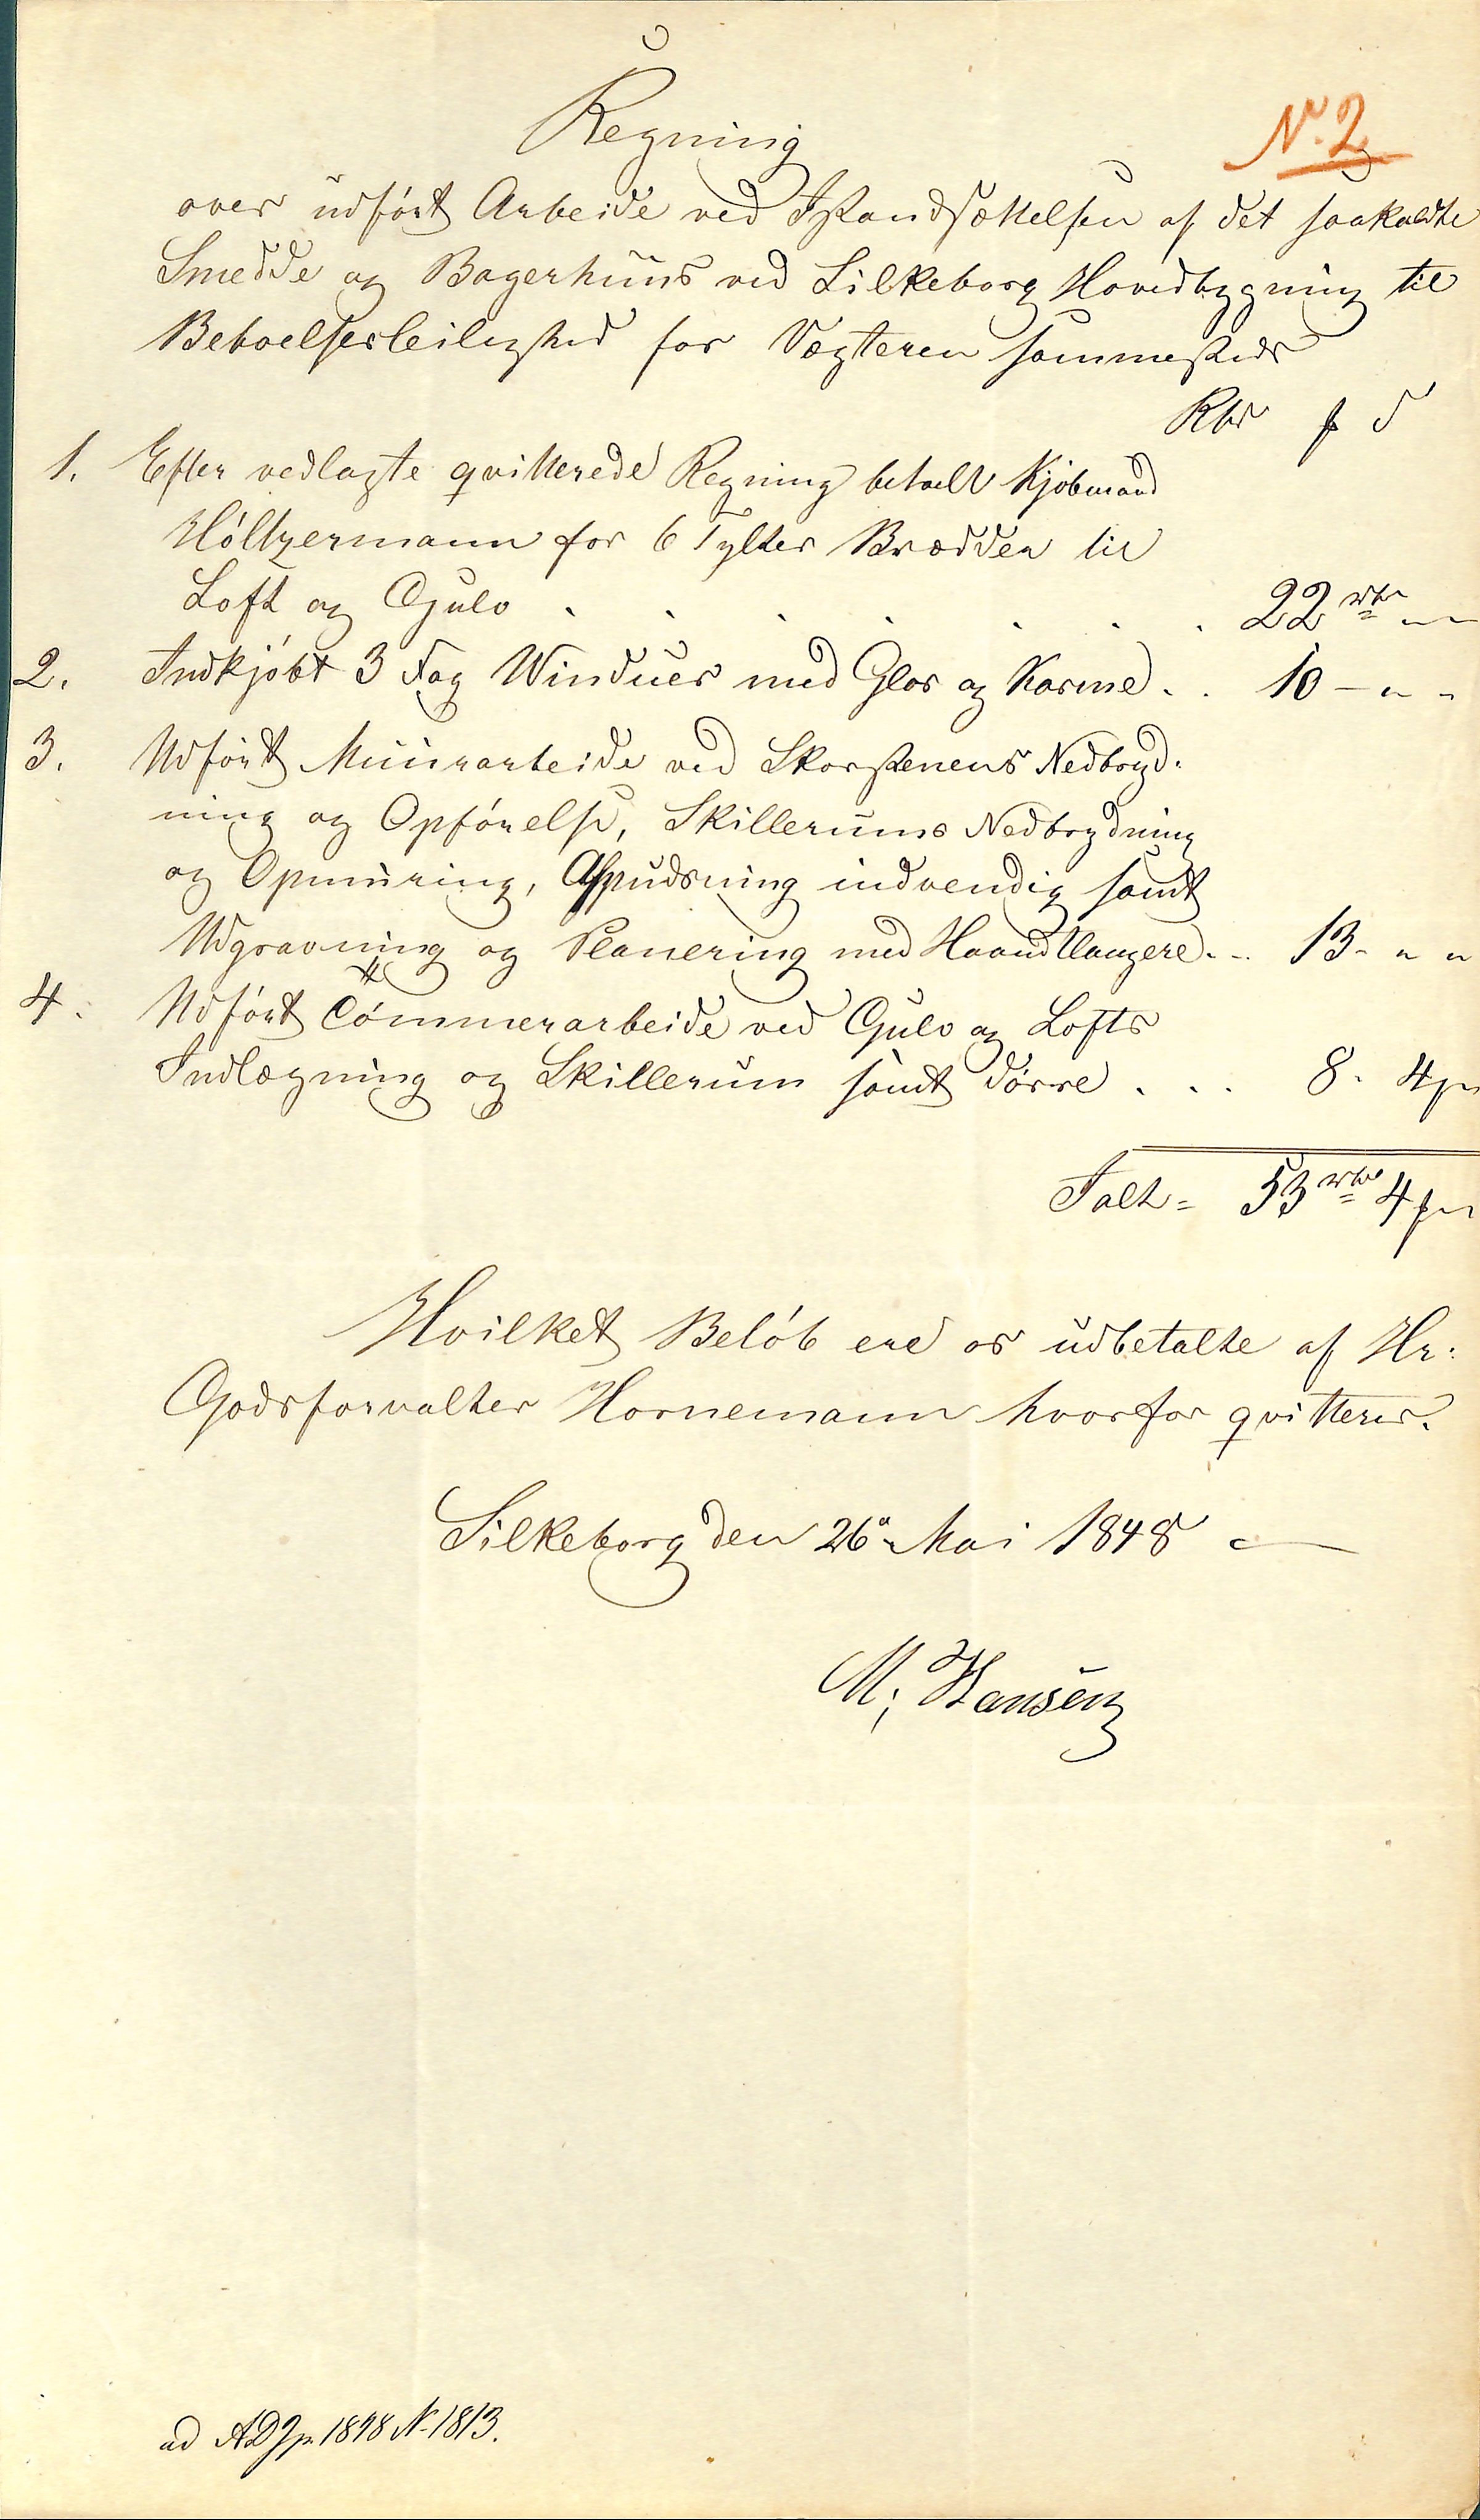 Regning
No. 2
over udført Arbeide ved Istandsættelsen af det saakaldte
Smedde og Bagerhuus ved Silkeborg Hovedbygning til
Beboelsesleilighed for Vægteren sammesteds
Rbd ƒ s
1. Efter vedlagte qvitterede Regning betalt Kjøbmand
Høltzermann for 6 Tylter Brædder til
Loft og Gulv . . . . . . . 22 rbd " "
2. Indkjøbt 3 Fag Winduer med Glas og Karme . . 10 - " "
3. Udført Muurarbeide ved Skorstenens Nedbryd-
ning og Opførelse, Skillerums Nedbrydning
og Opmuring, Afpudsning indvendig samt
Udgravning og Planering med Haandtlangere . . 13 - " "
4. Udført Tømmerarbeide ved Gulv og Lofts
Indlægning og Skillerum samt Dørre . . . 8 - 4 ƒ "
Ialt = 53 rbd 4 ƒ "
Hvilket Beløb ere os udbetalte af Hr:
Godsforvalter Hornemann hvorfor qvitteres.
Silkeborg den 26 Mai 1848
M; Hansen
ad A D Jr. 1848 N. 1813.